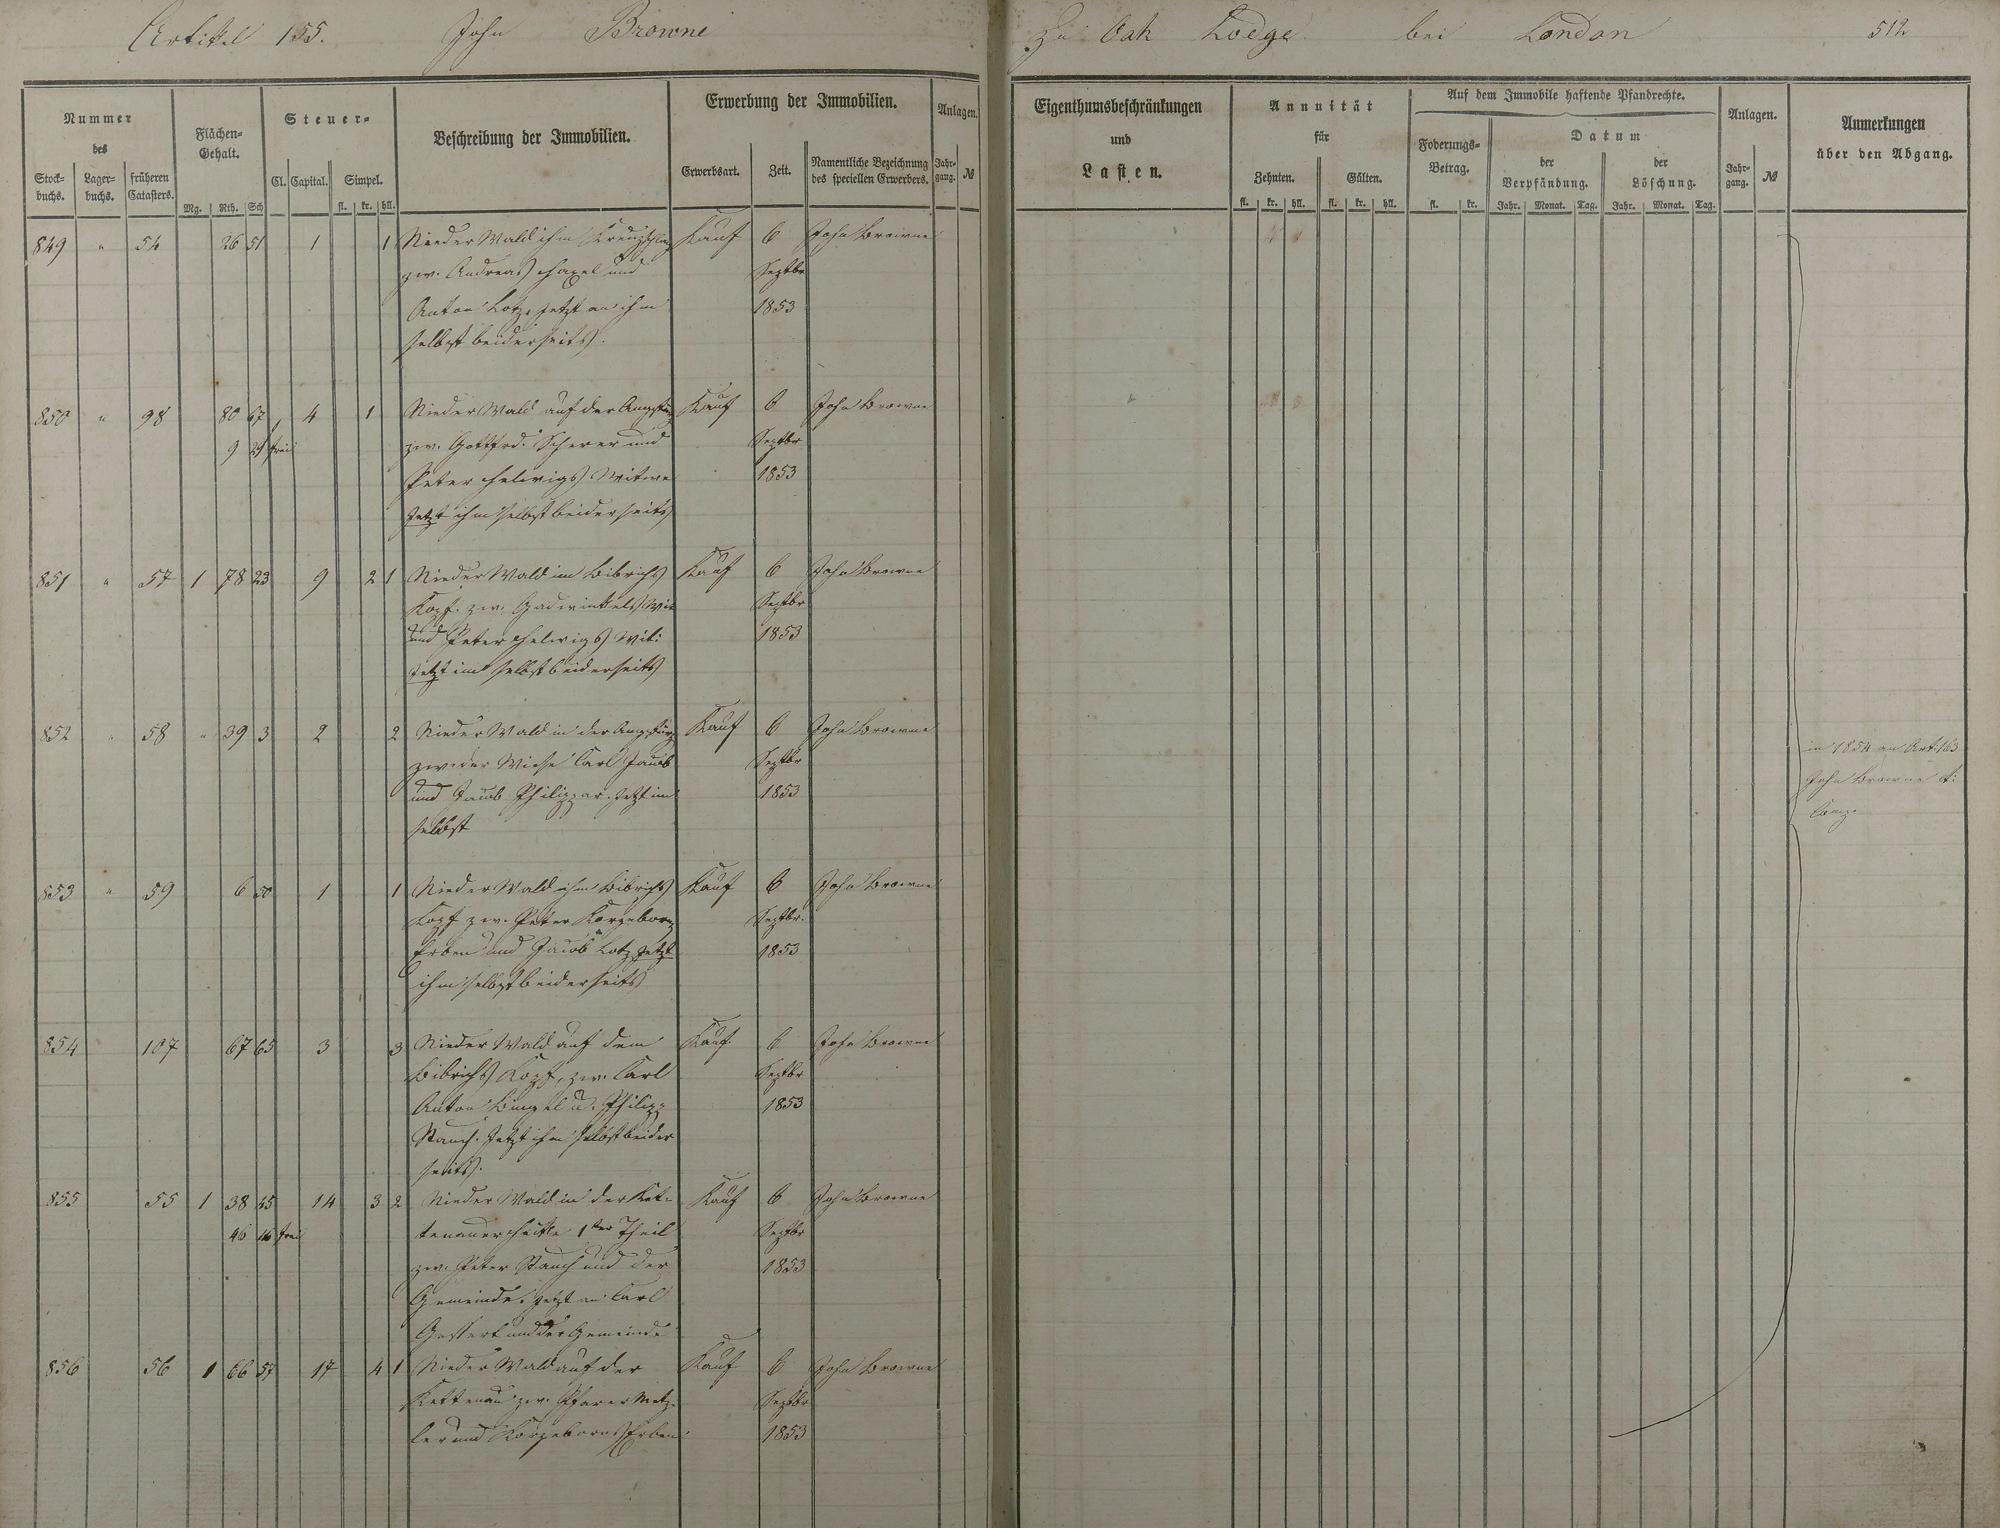 Artikel 155. John Browne zu Oak Lodge bei London 512
Nummer des
Stockbuchs. Lagerbuchs. früheren Catasters.
Flächen-Gehalt.
Mg. Rth. Sch
Steuer-
Cl. Capital. Simpel.
fl. kr. hll.
Beschreibung der Immobilien.
Erwerbung der Immobilien.
Erwerbsart. Zeit. Namentliche Bezeichnung des speciellen Erwerbers.
Anlagen.
Jahrgang. №
Eigenthumsbeschränkungen
und
Lasten.
Annuität
für
Zehnten. Gülten.
fl. kr. hll. fl. kr. hll.
Auf dem Immobile haftende Pfandrechte.
Foderungs-Betrag.
fl. kr.
Datum
der Verpfändung. der Löschung.
Jahr. Monat. Tag. Jahr. Monat. Tag.
Anlagen.
Jahrgang. №
Anmerkungen
über den Abgang.
849 " 54 26 51 1 1 Nieder Wald ihm Kauf 6 John Browne
zw. Andreas und Septbr
Anton Lotz, jetzt an ihm 1853
selbst beiderseits.
850 " 98 80 67 4 1 Nieder Wald auf der Kauf 6 John Browne
9 frei zw. Gottfrd. Scherer und Septbr
Peter Helwigs Witwe 1853
Jetzt ihm selbst beiderseits
851 " 57 1 78 23 9 2 1 Nieder Wald im Bibrichs Kauf 6 John Browne
Kopf. zw. Septbr
und Peter Helwigs Wit: 1853
Jetzt im selbst beiderseits
852 " 58 " 39 3 2 2 Nieder Wald in der Kauf 6 John Browne
zw. der Wiese Carl Jacob Septbr
und Jacob Philippar. Jetzt im 1853
selbst
in 1854 an Art: 163
John Browne et:
Comp.
853 " 59 6 50 1 1 Nieder Wald ihm Bibrichs Kauf 6 John Browne
Kopf zw. Peter Korzeborns Septbr.
Erben und Jacob Lotz Jetzt 1853
ihm selbst beiderseits
854 107 67 65 3 3 Nieder Wald auf dem Kauf 6 John Browne
Bibrichs Kopf, zw. Carl Septbr
Anton Bingel u. Philipp 1853
Stauch. Jetzt ihm selbst beider
seits.
855 55 1 38 45 14 3 2 Nieder Wald in der Ket= Kauf 6 John Browne
46 frei tenauer Hütte 1ter Theil Septbr
zw. Peter Stauch und der 1853
Gemeinde. jetzt an Carl
Gassert und der Gemeinde
856 56 1 66 57 17 4 1 Nieder Wald auf der Kauf 6 John Browne
Kettenau zw. Pfarer Metz= Septbr
ler und Korzeborns Erben 1853